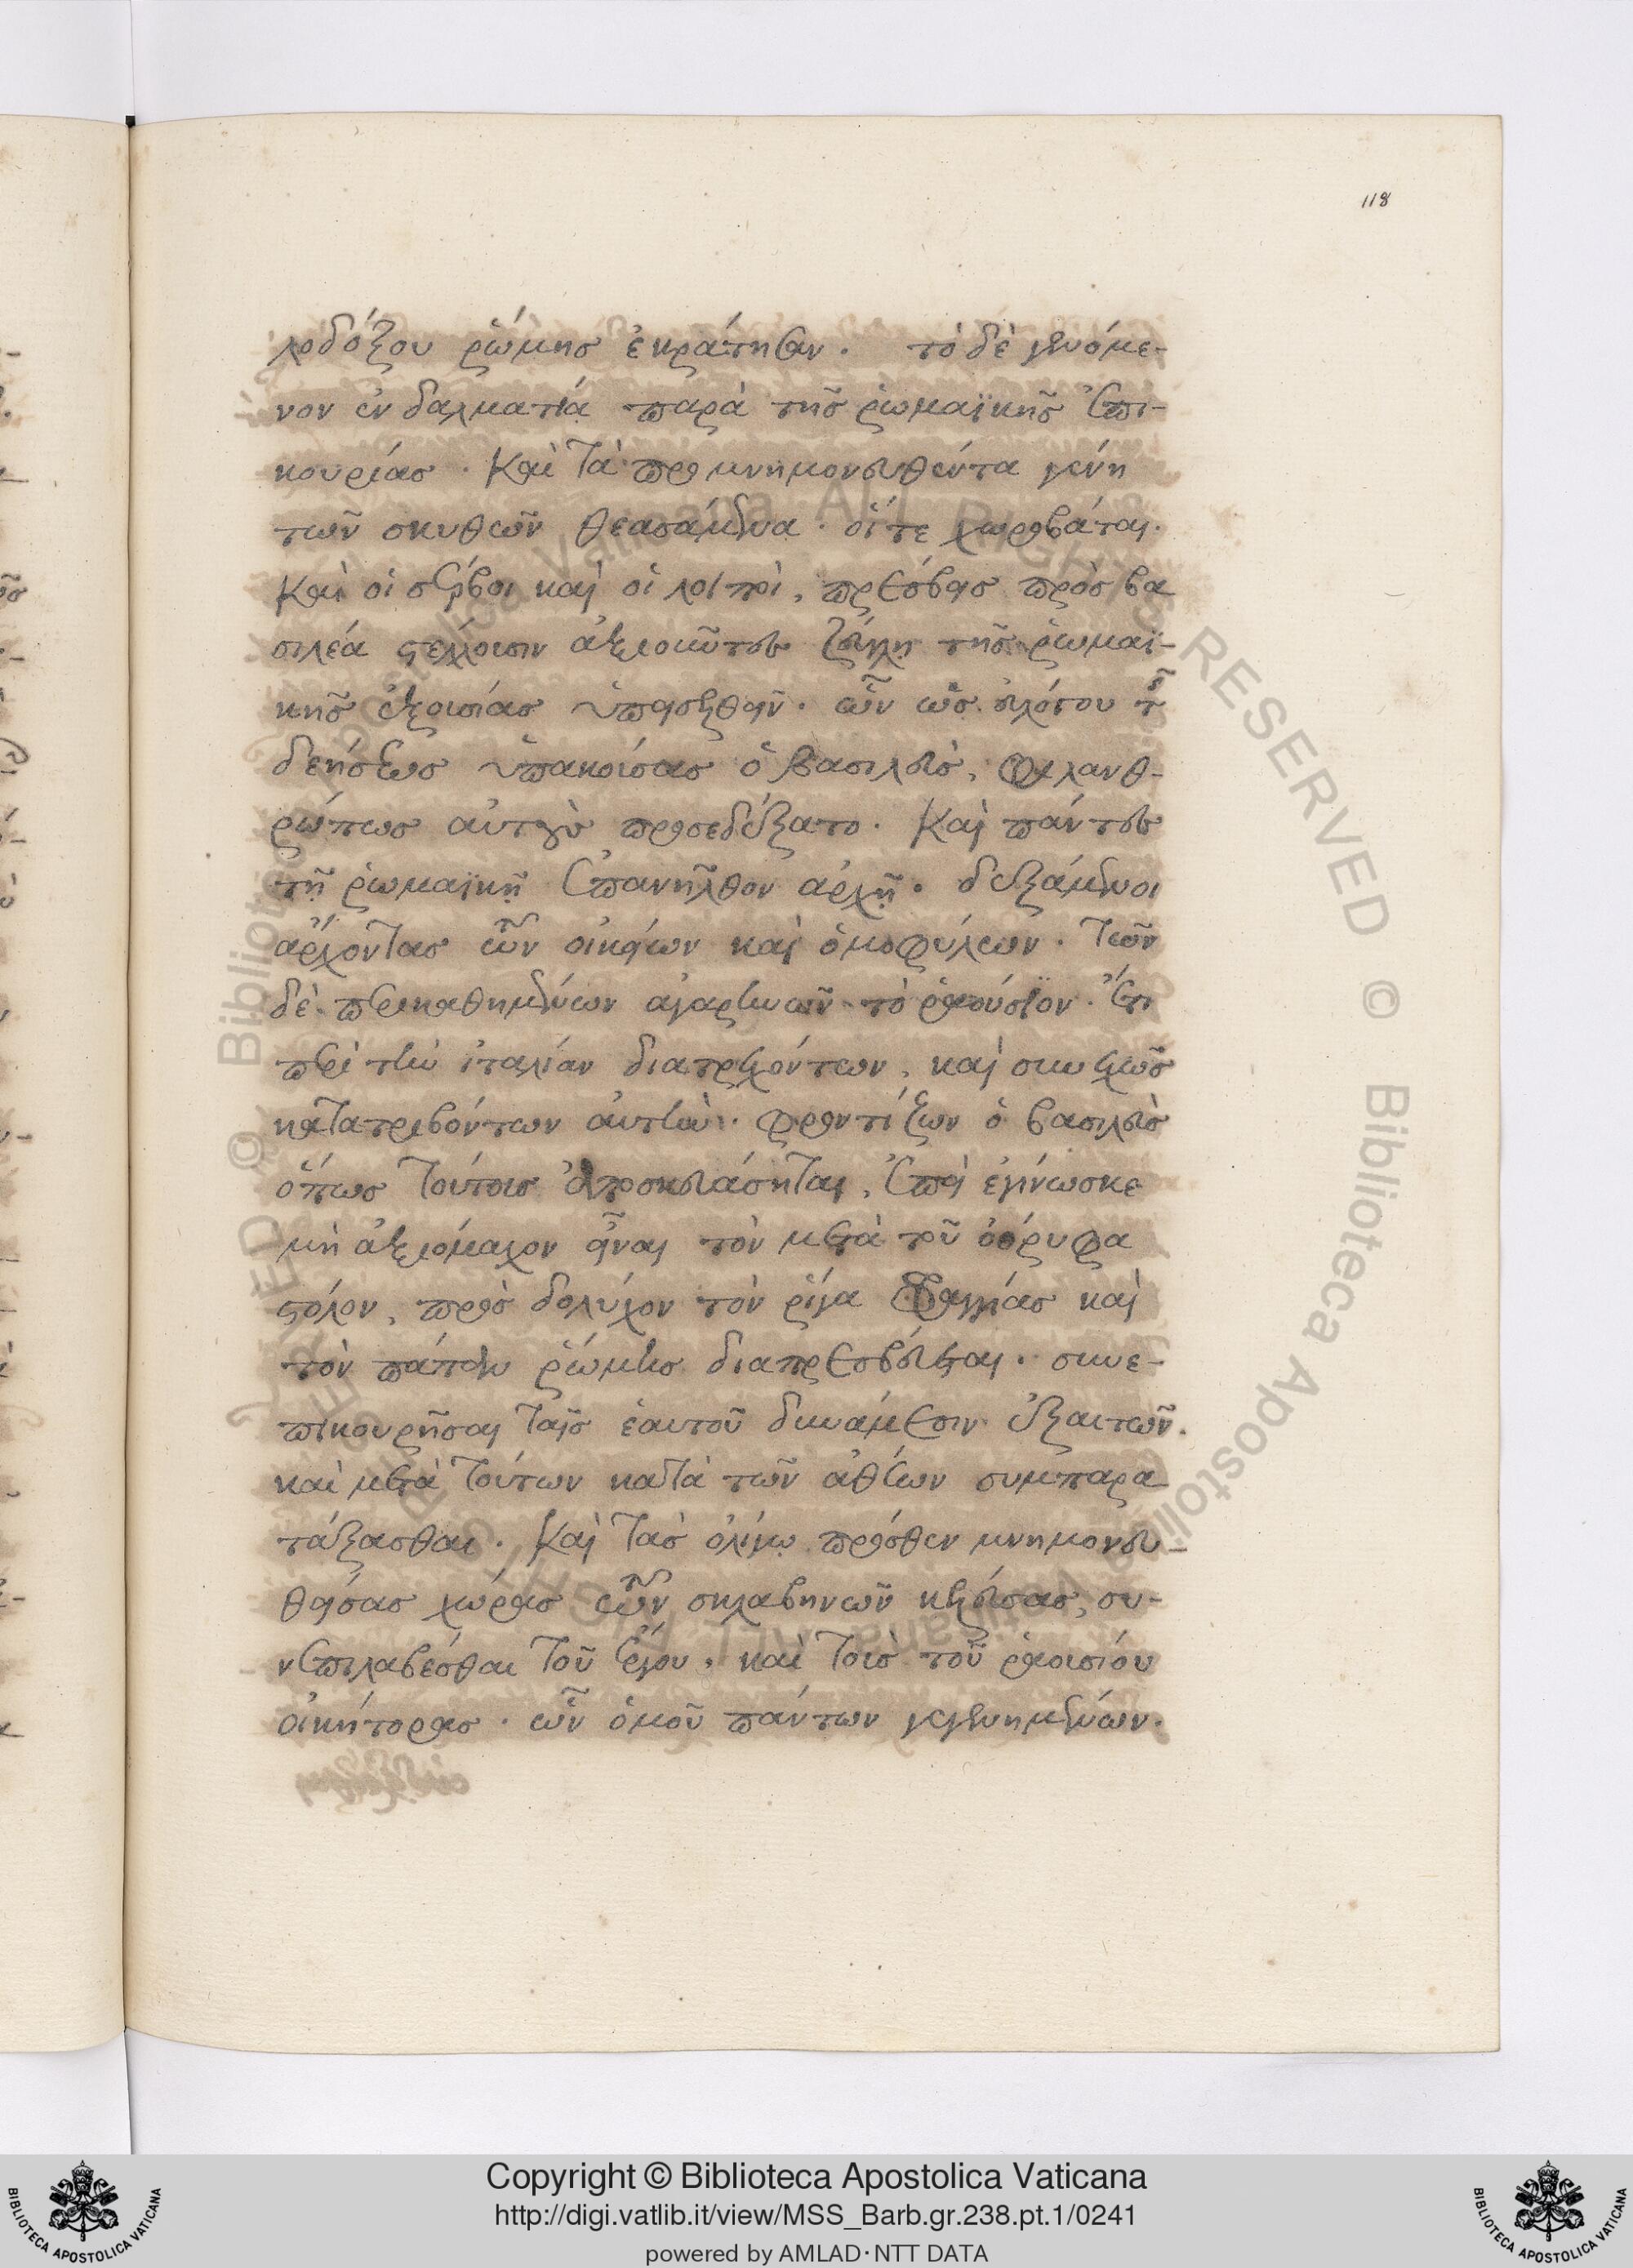 118
λοδόξου ῥώμης ἐκράτησαν. τὸ δὲ γενόμε-
νον ἐν δαλματίᾳ παρὰ τῆς ῥωμαϊκῆς ἐπι-
κουρίας. καὶ τὰ προμνημονευθέντα γένη
τῶν σκυθῶν θεασάμενα. οἵ τε χωροβάτοι.
καὶ οἱ σέρβοι καὶ οἱ λοιποὶ, πρέσβεις πρὸς βα
σιλέα στέλλουσιν ἀξιοῦντες ζεύγλῃ τῆς ῥωμαϊ-
κῆς ἐξουσίας ὑπεισελθεῖν. ὧν ὡς εὐλόγου τῆς
δεήσεως ὑπακούσας ὁ βασιλεὺς, φιλανθ-
ρώπως αὐτοὺς προσεδέξατο. καὶ πάντες
τῇ ῥωμαϊκῇ ἐπανῆλθον ἀρχῇ. δεξάμενοι
ἄρχοντας τῶν οἰκείων καὶ ὁμοφύλων. τῶν
δὲ περικαθημένων ἀγαρηνῶν τὸ ῥαούσϊον. ἔτι
περὶ τὴν ἰταλίαν διατρεχόντων, καὶ συνεχῶς
κατατριβόντων αὐτὴν. φροντίζων ὁ βασιλεὺς
ὅπως τούτοις ἀντοσκευάσηται, ἐπεὶ ἐγίνωσκε
μὴ ἀξιόμαχον εἶναι τὸν μετὰ τοῦ ὀορύφα
στόλον, πρὸς δολύχον τὸν ῥῆγα φραγγίας καὶ
τὸν πάπαν ῥώμης διαπρεσβεύεται. συνε-
πικουρῆσαι ταῖς ἑαυτοῦ δυνάμεσιν ἐξαιτῶν.
καὶ μετὰ τούτων κατὰ τῶν ἀθέων συμπαρα
τάξασθαι. καὶ τὰς ὀλίγῳ πρόσθεν μνημονευ-
θείσας χώρας τῶν σκλαβηνῶν κελεύσας, συ-
νεπιλαβέσθαι τοῦ ἔργου, καὶ τοὺς τοῦ ῥαουσίου
οἰκήτορας. ὧν ὁμοῦ πάντων γεγενημένων.
Copyright © Biblioteca Apostolica Vaticana
http://digi.vatlib.it/view/MSS_Barb.gr.238.pt.1/0241
powered by AMLAD·NTT DATA
BIBLIOTECA APOSTOLICA VATICANA
BIBLIOTECA APOSTOLICA VATICANA